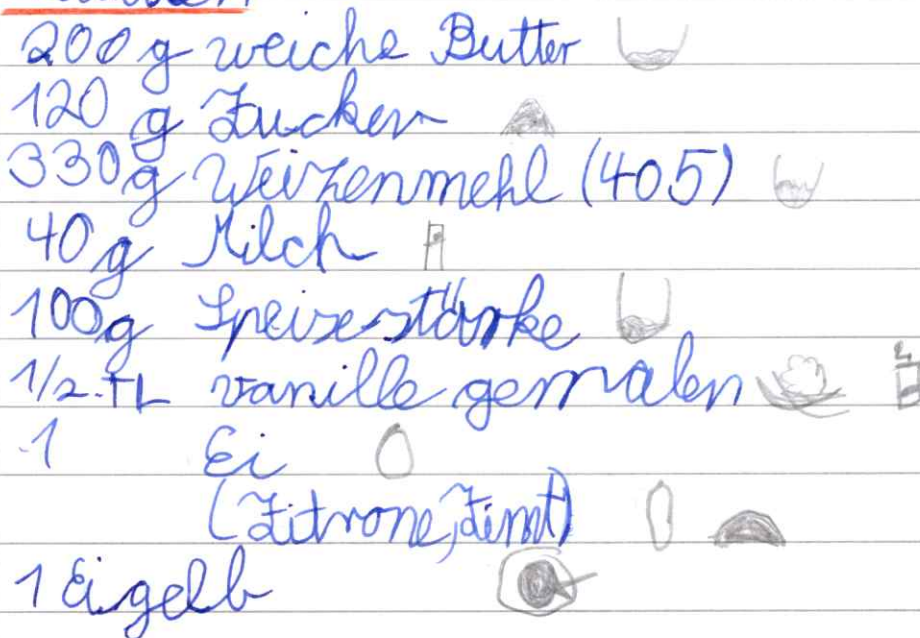 200 g weiche Butter
120 g Zucker
330g Weizenmehl (405)
40 g Milch
100g Speisestärke
1/2 TL vanille gemalen
1 Ei
(Zitrone, Zimt)
1 Eigelb